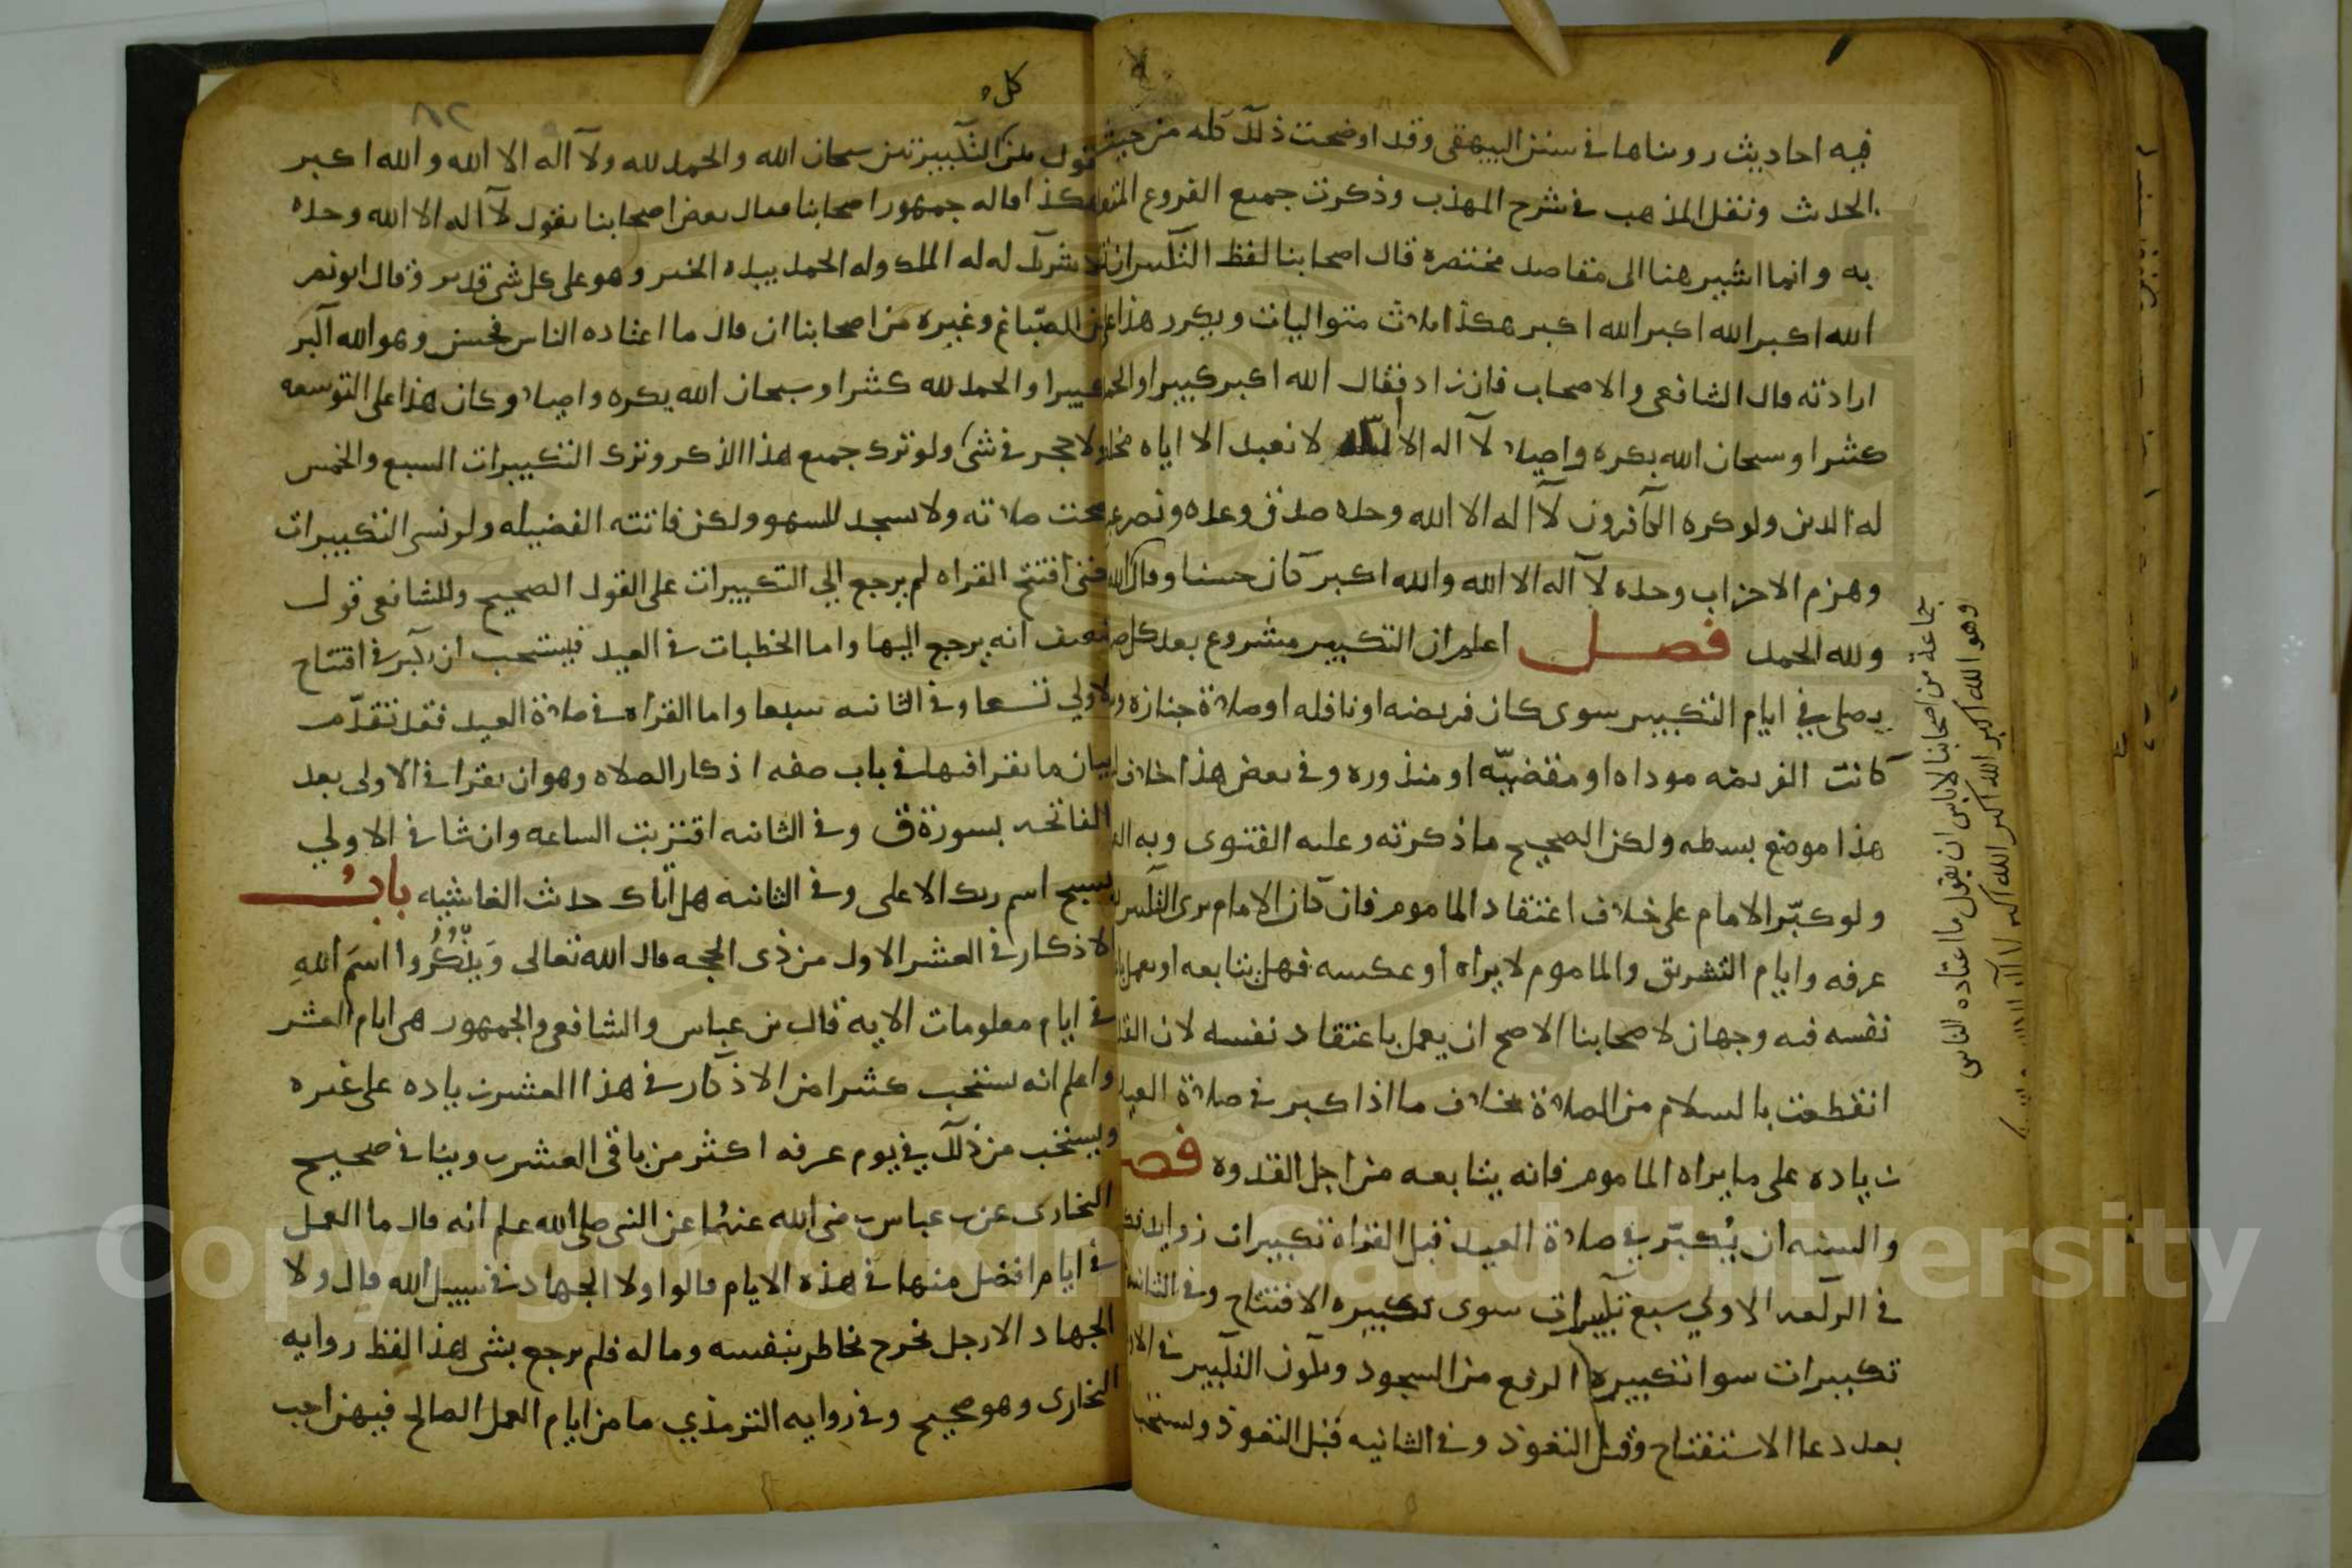 فيه احاديث رويناها في سنن البيهقي وقد اوضحت ذلك كله من حيث
الحديث ونقل المذهب في شرح المهذب وذكرت جميع الفروع
به وانما اشير هنا الى مقاصد مختصره قال اصحابنا لفظ التكبير ان
الله اكبر الله اكبر الله اكبر هكذا ثلاث متواليات ويكرر هذا
ارادته قال الشافعي والاصحاب فان زاد فقال الله اكبر كبيرا
كثيرا وسبحان الله بكره واصيلا لا اله الا الله لا نعبد الا اياه
له الدين ولو كره الكافرون لا اله الا الله وحده صدق وعده ونصر
وهزم الاحزاب وحده لا اله الا الله والله اكبر كان حسنا وقال
ولله الحمد فصل اعلم ان التكبير مشروع بعد كل
يصلى في ايام التكبير سوى كان فريضه او نافله او صلاة جنازه
كانت الفريضه موداه او مقضيّه او منذوره وفي بعض هذا خلاف
هذا موضع بسطه ولكن الصحيح ما ذكرته وعليه الفتوى وبه
ولو كبّر الامام على خلاف اعتقاد الماموم فان كان الامام يرى التكبير
عرفه وايام التشريق والماموم لا يراه أو عكسه فهل يتابعه او يعمل
نفسه فيه وجهان لاصحابنا الاصح ان يعمل باعتقاد نفسه لان
انقطعت بالسلام من الصلاة بخلاف ما اذا كبر في صلاة
زياده على ما يراه الماموم فانه يتابعه من اجل القدوه
والسنه ان يُكبّر في صلاة العيد قبل القراة تكبيرات زوايد
في الركعه الاولي سبع تكبيرات سوى تكبيره الافتتاح وفي
تكبيرات سوا تكبيرة الرفع من السجود ويكون التكبير في
بعد دعا الاستفتاح وقبل التعوذ وفي الثانيه قبل التعوذ
جماعة من اصحابنا لاباس ان يقول ما اعتاده الناس
وهو الله اكبر الله اكبر الله اكبر
كل
يقول بين التكبيرتين سبحان الله والحمد لله ولا اله الا الله والله اكبر
هكذا قاله جمهور اصحابنا وقال بعض اصحابنا يقول لا اله الا الله وحده
لا شريك له له الملك وله الحمد بيده الخير وهو على كل شي قدير وقال ابو نصر
بن الصبّاغ وغيره من اصحابنا ان قال ما اعتاده الناس فحسن وهو الله اكبر
كبيرا والحمد لله كثيرا وسبحان الله بكره واصيلا وكان هذا على التوسعه
ولا حجر في شي ولو ترك جميع هذا الذكر وترك التكبيرات السبع والخمس
صحت صلاته ولا يسجد للسهو ولكن فاتته الفضيله ولو نسى التكبيرات
حتى افتتح القراه لم يرجع الي التكبيرات على القول الصحيح وللشافعي قول
ضعيف انه يرجع اليها واما الخطبات في العيد فيستحب ان يكبر في افتتاح
الاولي تسعا وفي الثانيه سبعا واما القراه في صلاة العيد فقد تقدّم
بيان ما يقرا فيها في باب صفه اذكار الصلاه وهو ان يقرا في الاولى بعد
الفاتحه بسورة ق وفي الثانيه اقتربت الساعه وان شا في الاولي
سبح اسم ربك الاعلى وفي الثانيه هل اتاك حديث الغاشيه باب
الاذكار في العشر الاول من ذى الحجه قال الله تعالى وَيَذْكُرُوا اسمَ اللهِ
في ايام معلومات الايه قال بن عباس والشافعي والجمهور هي ايام العشر
واعلم انه يستحب كثيرا من الاذكار في هذا العشر زياده على غيره
ويستحب من ذلك في يوم عرفه اكثر من باقى العشر روينا في صحيح
البخارى عن بن عباس رضي الله عنهما عن النبي صلى الله علم انه قال ما العمل
في ايام افضل منها في هذه الايام قالوا ولا الجهاد في سبيل الله قال ولا
الجهاد الا رجل خرج يخاطر بنفسه وماله فلم يرجع بشي هذا لفظ روايه
البخارى وهو صحيح وفي روايه الترمذي ما من ايام العمل الصالح فيهن احب
Copyright © King Saud University